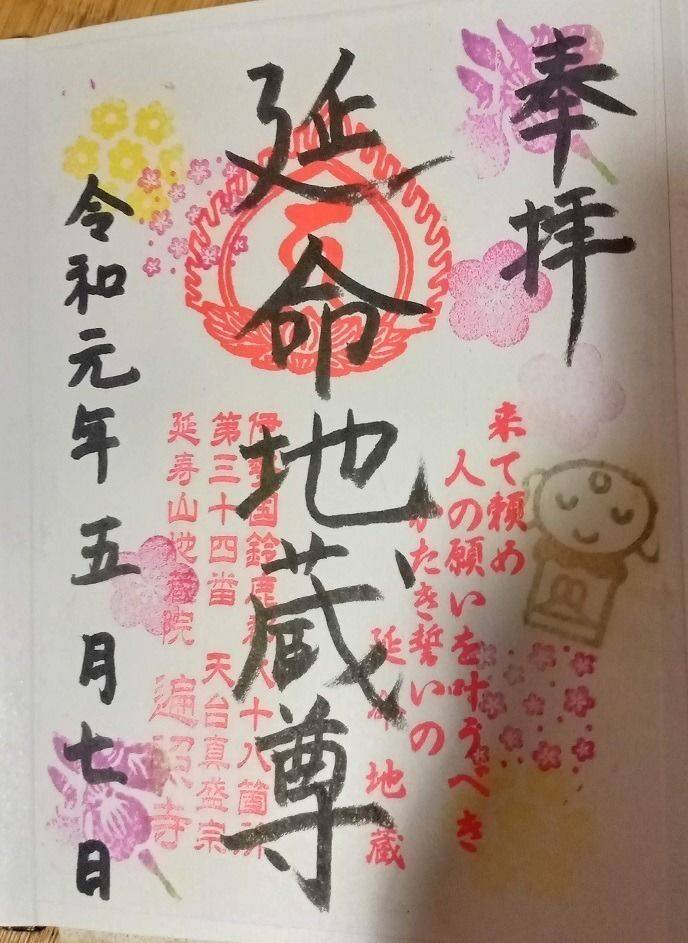 奉拝
来て頼め
人の願いを叶うべき
かたき誓いの
延命地蔵
延命地蔵尊
伊勢国鈴鹿 八十八箇所
第三十四番 天台真盛宗
延寿山地蔵院 遍照寺
令和元年五月七日